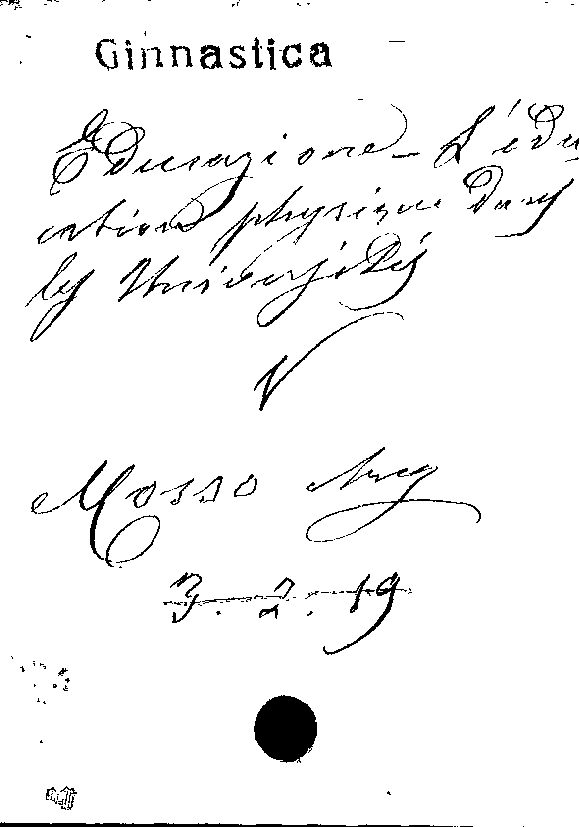 Ginnastica
Educazione - L'édu
cation physique dans
les Universités
V
Mosso Ang
3. 2. 19